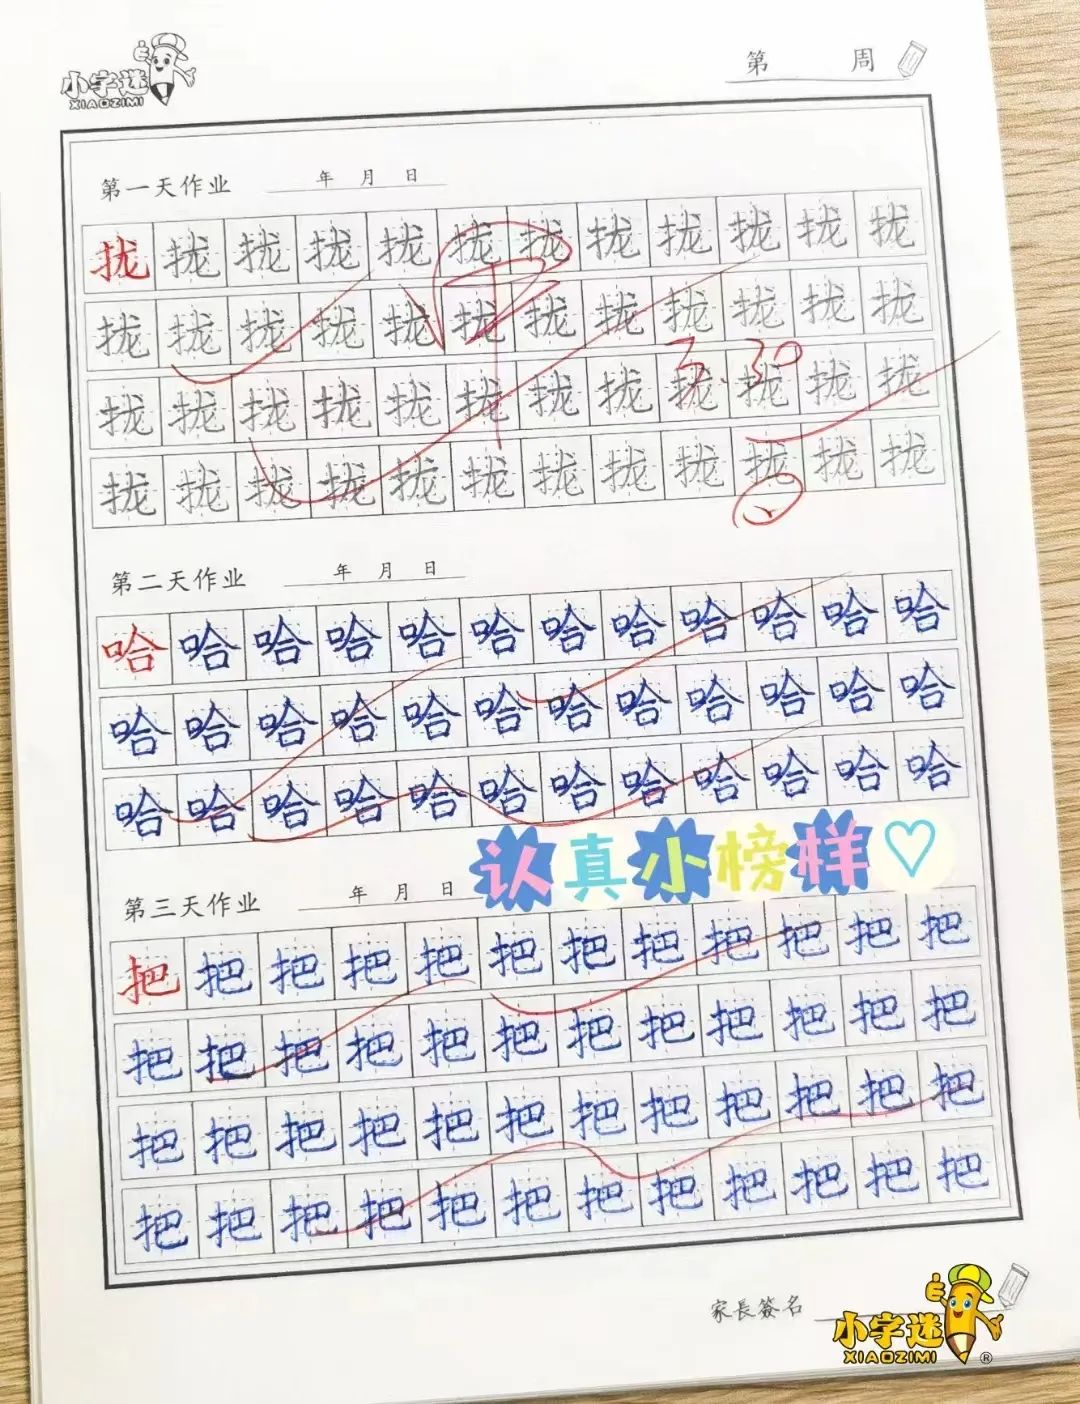 小字迷
XIAOZIMI
第 周
第一天作业 年 月 日
拢拢拢拢拢拢拢拢拢拢拢拢
拢拢拢拢拢拢拢拢拢拢拢拢
3.30
拢拢拢拢拢拢拢拢拢拢拢拢
拢拢拢拢拢拢拢拢拢拢拢拢
第二天作业 年 月 日
哈哈哈哈哈哈哈哈哈哈哈哈
哈哈哈哈哈哈哈哈哈哈哈哈
哈哈哈哈哈哈哈哈哈哈哈哈
认真小榜样♡
第三天作业 年 月 日
把把把把把把把把把把把把
把把把把把把把把把把把把
把把把把把把把把把把把把
把把把把把把把把把把把把
家長簽名
小字迷
XIAOZIMI®